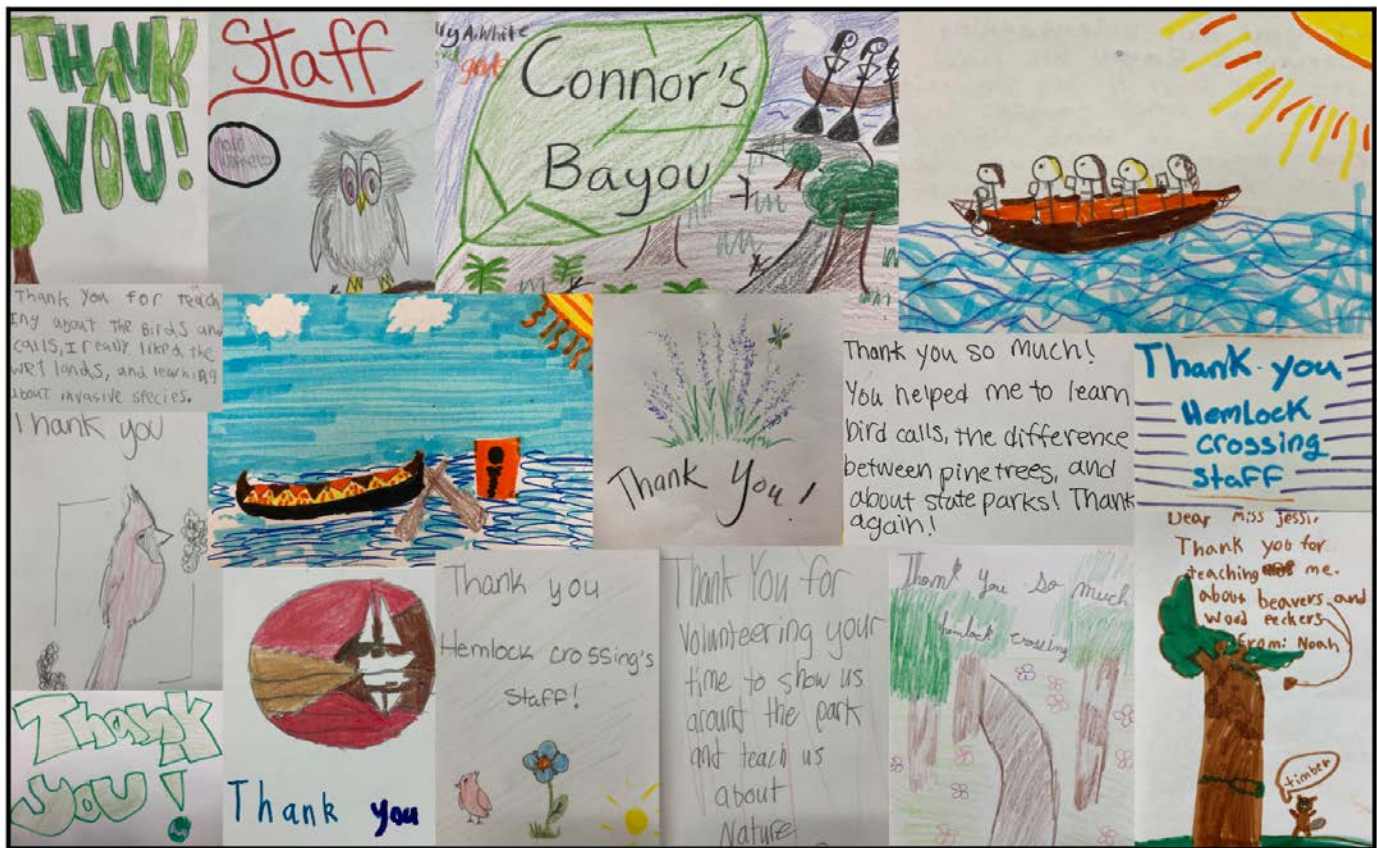 THANK
YOU!
Staff
ry A. White
Connor's
Bayou
Thank you for teach
ing about the Birds and
calls, I really liked the
wet lands, and learning
about invasive species.
Thank you
Thank You!
Thank you so much!
You helped me to learn
bird calls, the difference
between pine trees, and
about state parks! Thank
again!
Thank you
Hemlock
crossing
staff
Dear Miss jessi,
Thank you for
teaching me.
about beavers and
wood peckers
From: Noah
timber
Thank
you!
Thank you
Thank you
Hemlock crossing's
Staff!
Thank You for
Volunteering your
time to show us
around the park
and teach us
about
Nature
Thank You so much
hemlock crossing